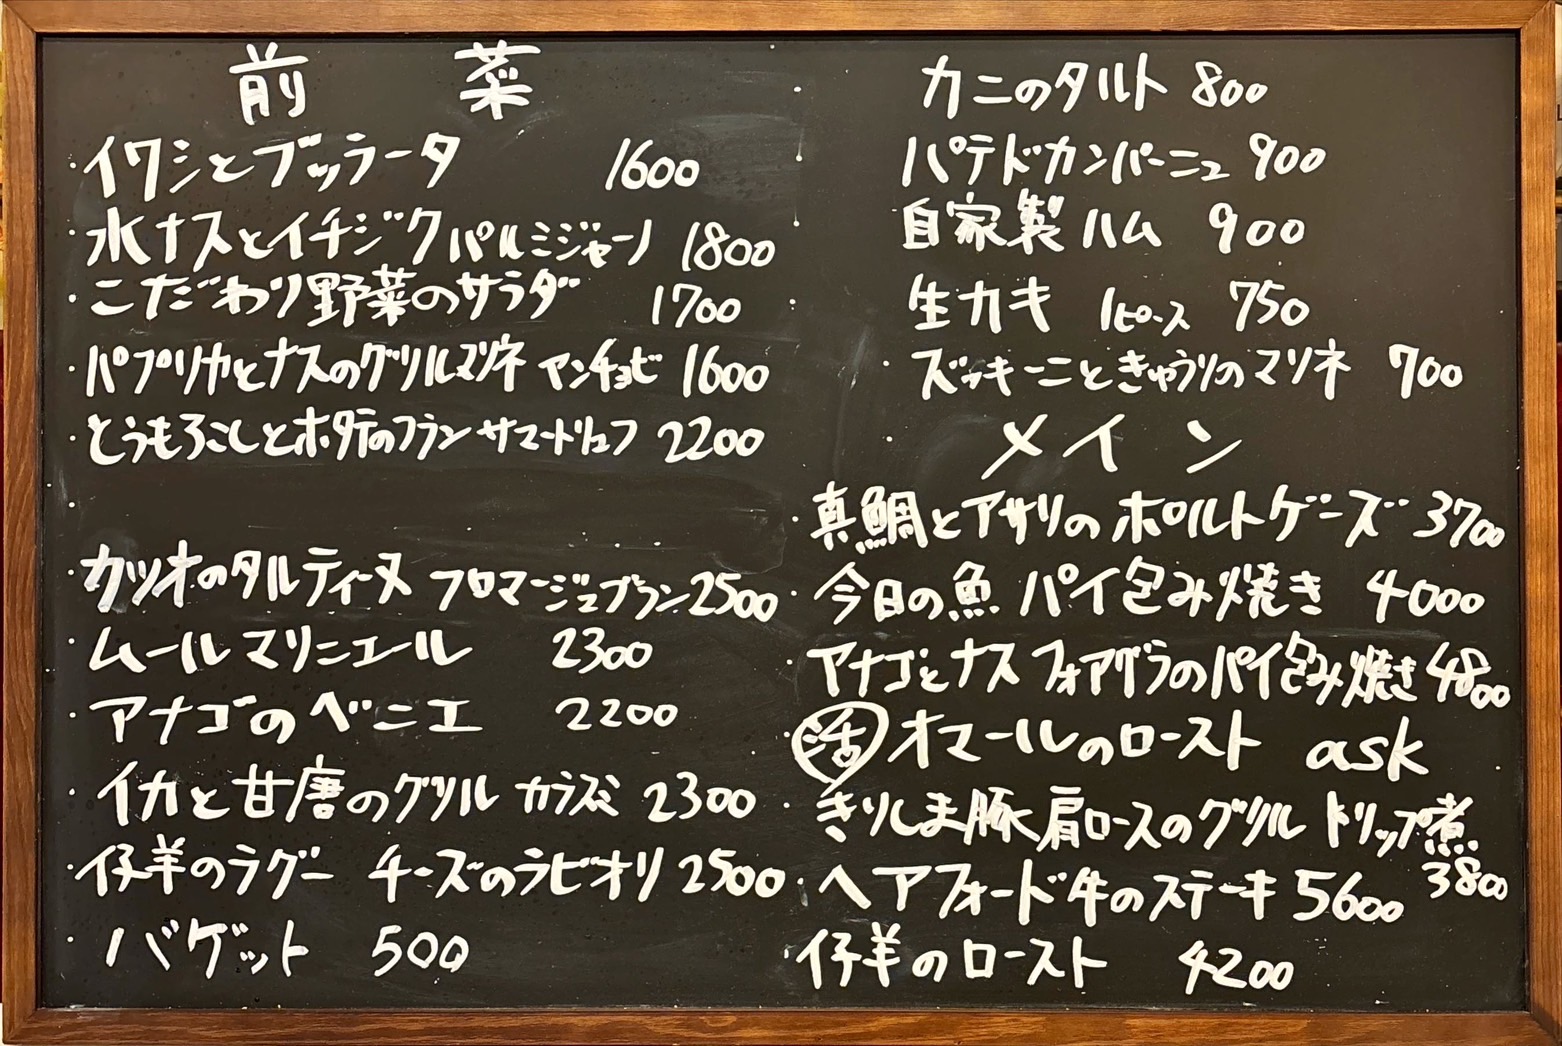 前菜
・イワシとブッラータ 1600
・水ナスとイチジク パルミジャーノ 1800
・こだわり野菜のサラダ 1700
・パプリカとナスのグリルマリネ アンチョビ 1600
・とうもろこしとホタテのフラン サマートリュフ 2200
・カツオのタルティーヌ フロマージュブラン 2500
・ムール マリニエール 2300
・アナゴのベニエ 2200
・イカと甘唐のグリル カラスミ 2300
・仔羊のラグー チーズのラビオリ 2500
・バゲット 500
カニのタルト 800
パテドカンパーニュ 900
自家製ハム 900
・生カキ 1ピース 750
・ズッキーニときゅうりのマリネ 700
・メイン
・真鯛とアサリのポルトゲーズ 3700
・今日の魚 パイ包み焼き 4000
アナゴとナス フォアグラのパイ包み焼き 4800
・活オマールのロースト ask
・きりしま豚肩ロースのグリル トリップ煮
3800
・ヘアフォード牛のステーキ 5600
・仔羊のロースト 4200